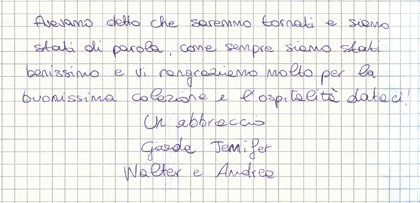 Avevamo detto che saremmo tornati e siamo
stati di parola, come sempre siamo stati
benissimo e vi ringraziamo molto per la
buonissima colazione e l'ospitalità dataci!
Un abbraccio
Giada Jennifer
Walter e Andrea